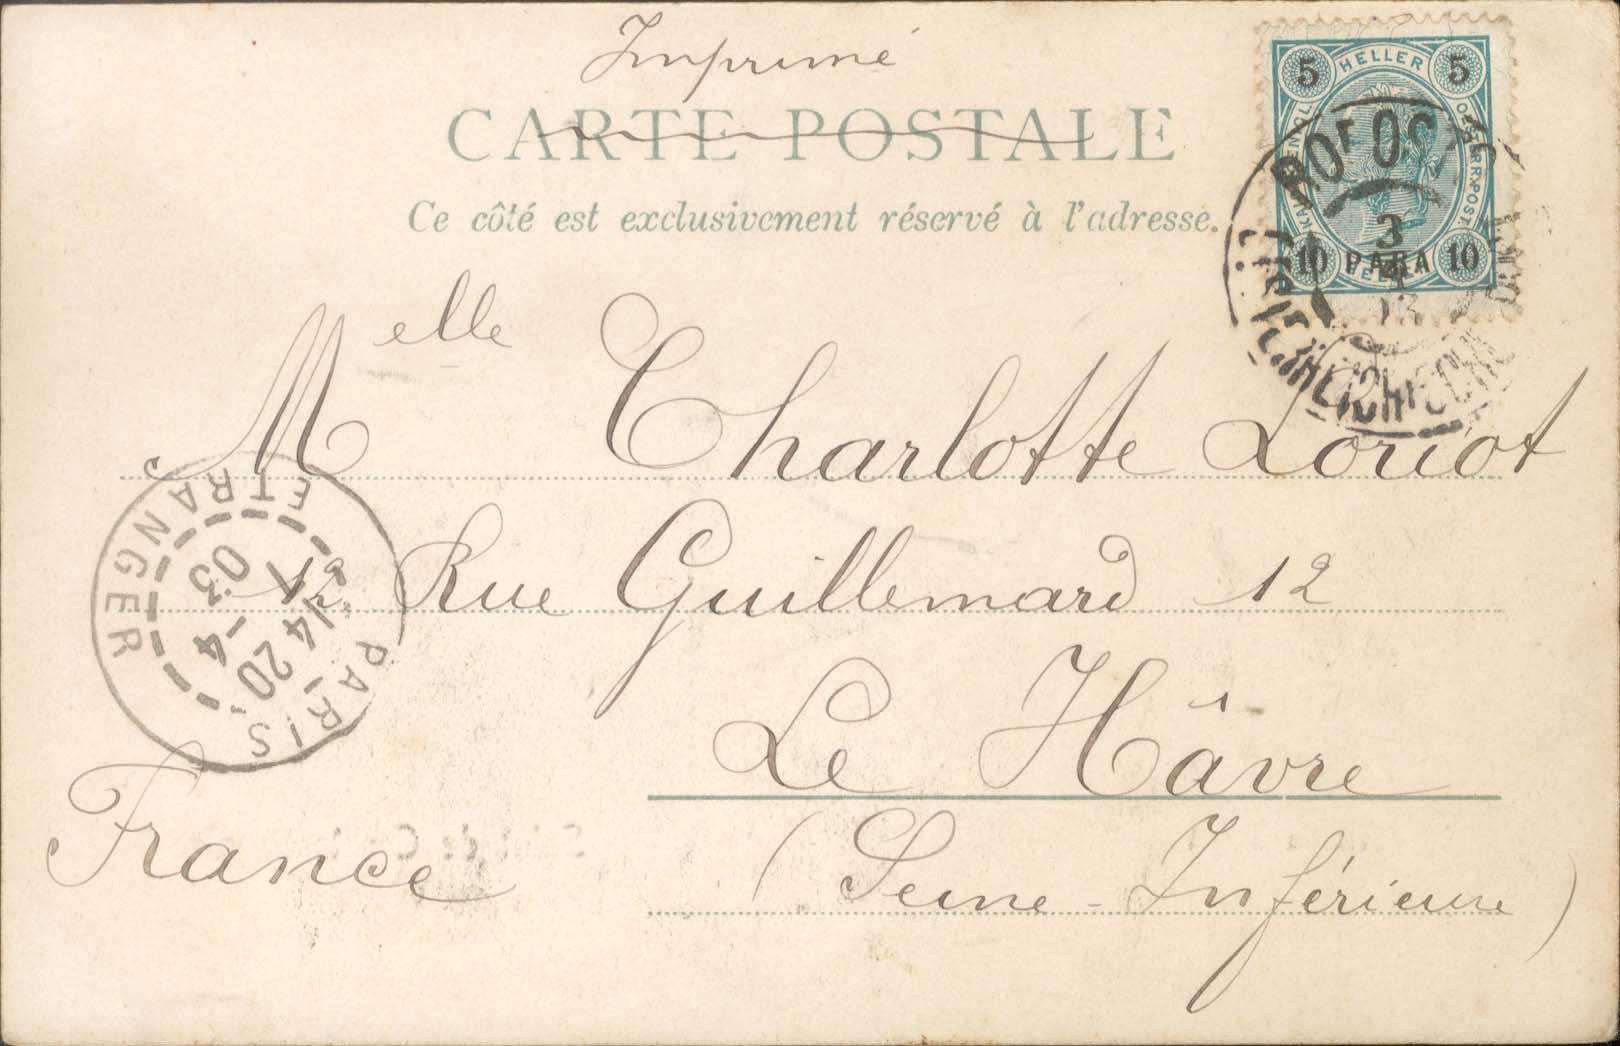 Imprimé
CARTE POSTALE
Ce côté est exclusivement réservé à l'adresse.
5 HELLER 5
10 PARA 10
Melle Charlotte Loriot
12 Rue Guillemard 12
Le Hâvre
(Seine-Inférieure)
France
PARIS ETRANGER
14 20
-4
03